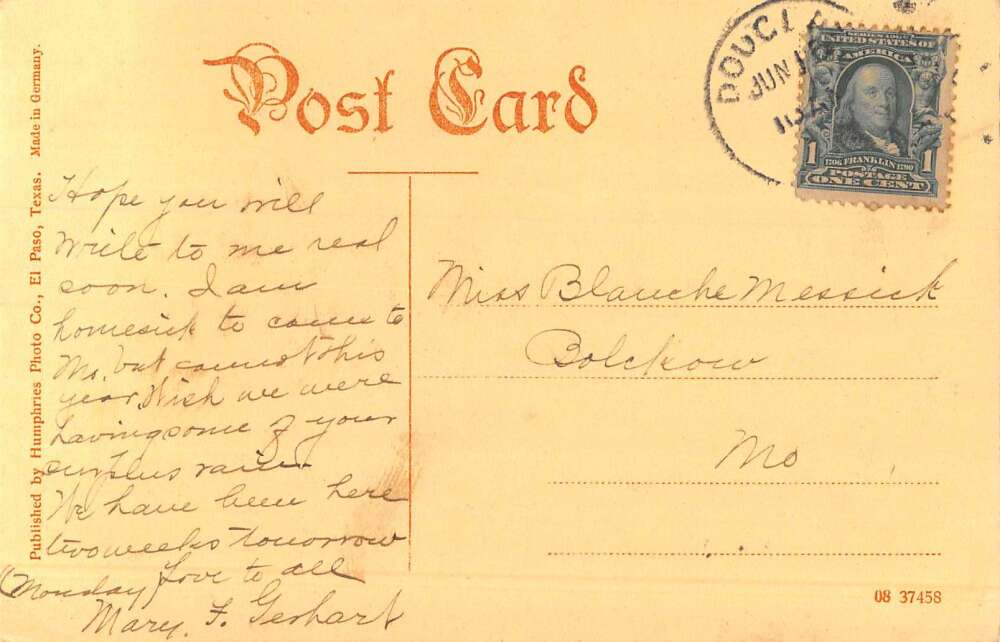 Post Card
DOUGL
JUN
SERIES 1902
UNITED STATES OF
AMERICA
1 1
1706 FRANKLIN 1790
POSTAGE
ONE CENT
Published by Humphries Photo Co., El Paso, Texas. Made in Germany.
Hope you will
write to me real
soon. I am
homesick to come to
Mo. but cannot this
year. Wish we were
having some of your
surplus rain.
We have been here
two weeks tomorrow
(Monday) Love to all
Mary. F. Gerhart
Miss Blanche Messick
Bolckow
Mo
08 37458